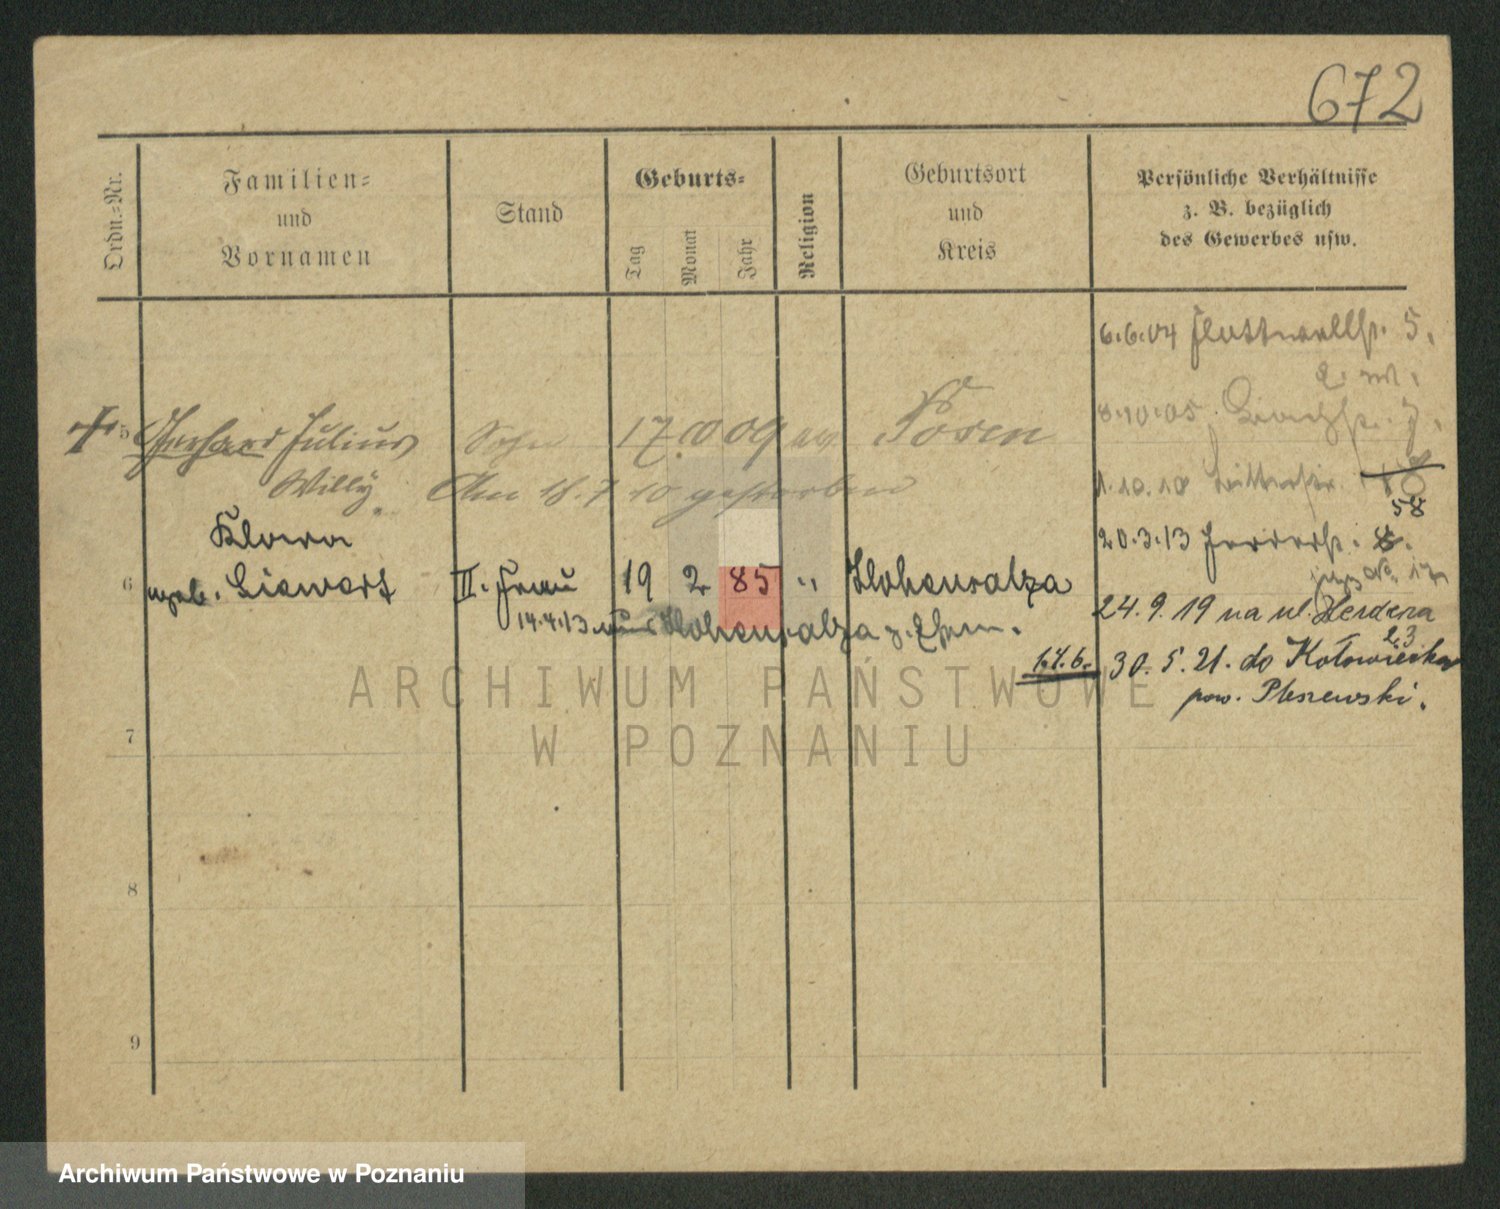 672
Ordn.-Nr.
Familien-
und
Vornamen
Stand
Geburts-
Tag
Monat
Jahr
Religion
Geburtsort
und
Kreis
Persönliche Verhältnisse
z. B. bezüglich
des Gewerbes usw.
6.6.04 Flottwellstr. 5.
8.10.05.
5 Gerhard Julius Sohn 17. 09 Posen
Willy Am 18.7 10 gestorben
1.10.10
58
20.3.13
Klara
6 geb. Siewert III. Frau 19 2 85 " Hohensalza
14.4.13 Hohensalza
24.9.19 na ul. Herdera
23
1.4.6. 30.5.21. do Kotowiecka
pow. Pleszewski.
7
8
9
ARCHIWUM PAŃSTWOWE
W POZNANIU
Archiwum Państwowe w Poznaniu